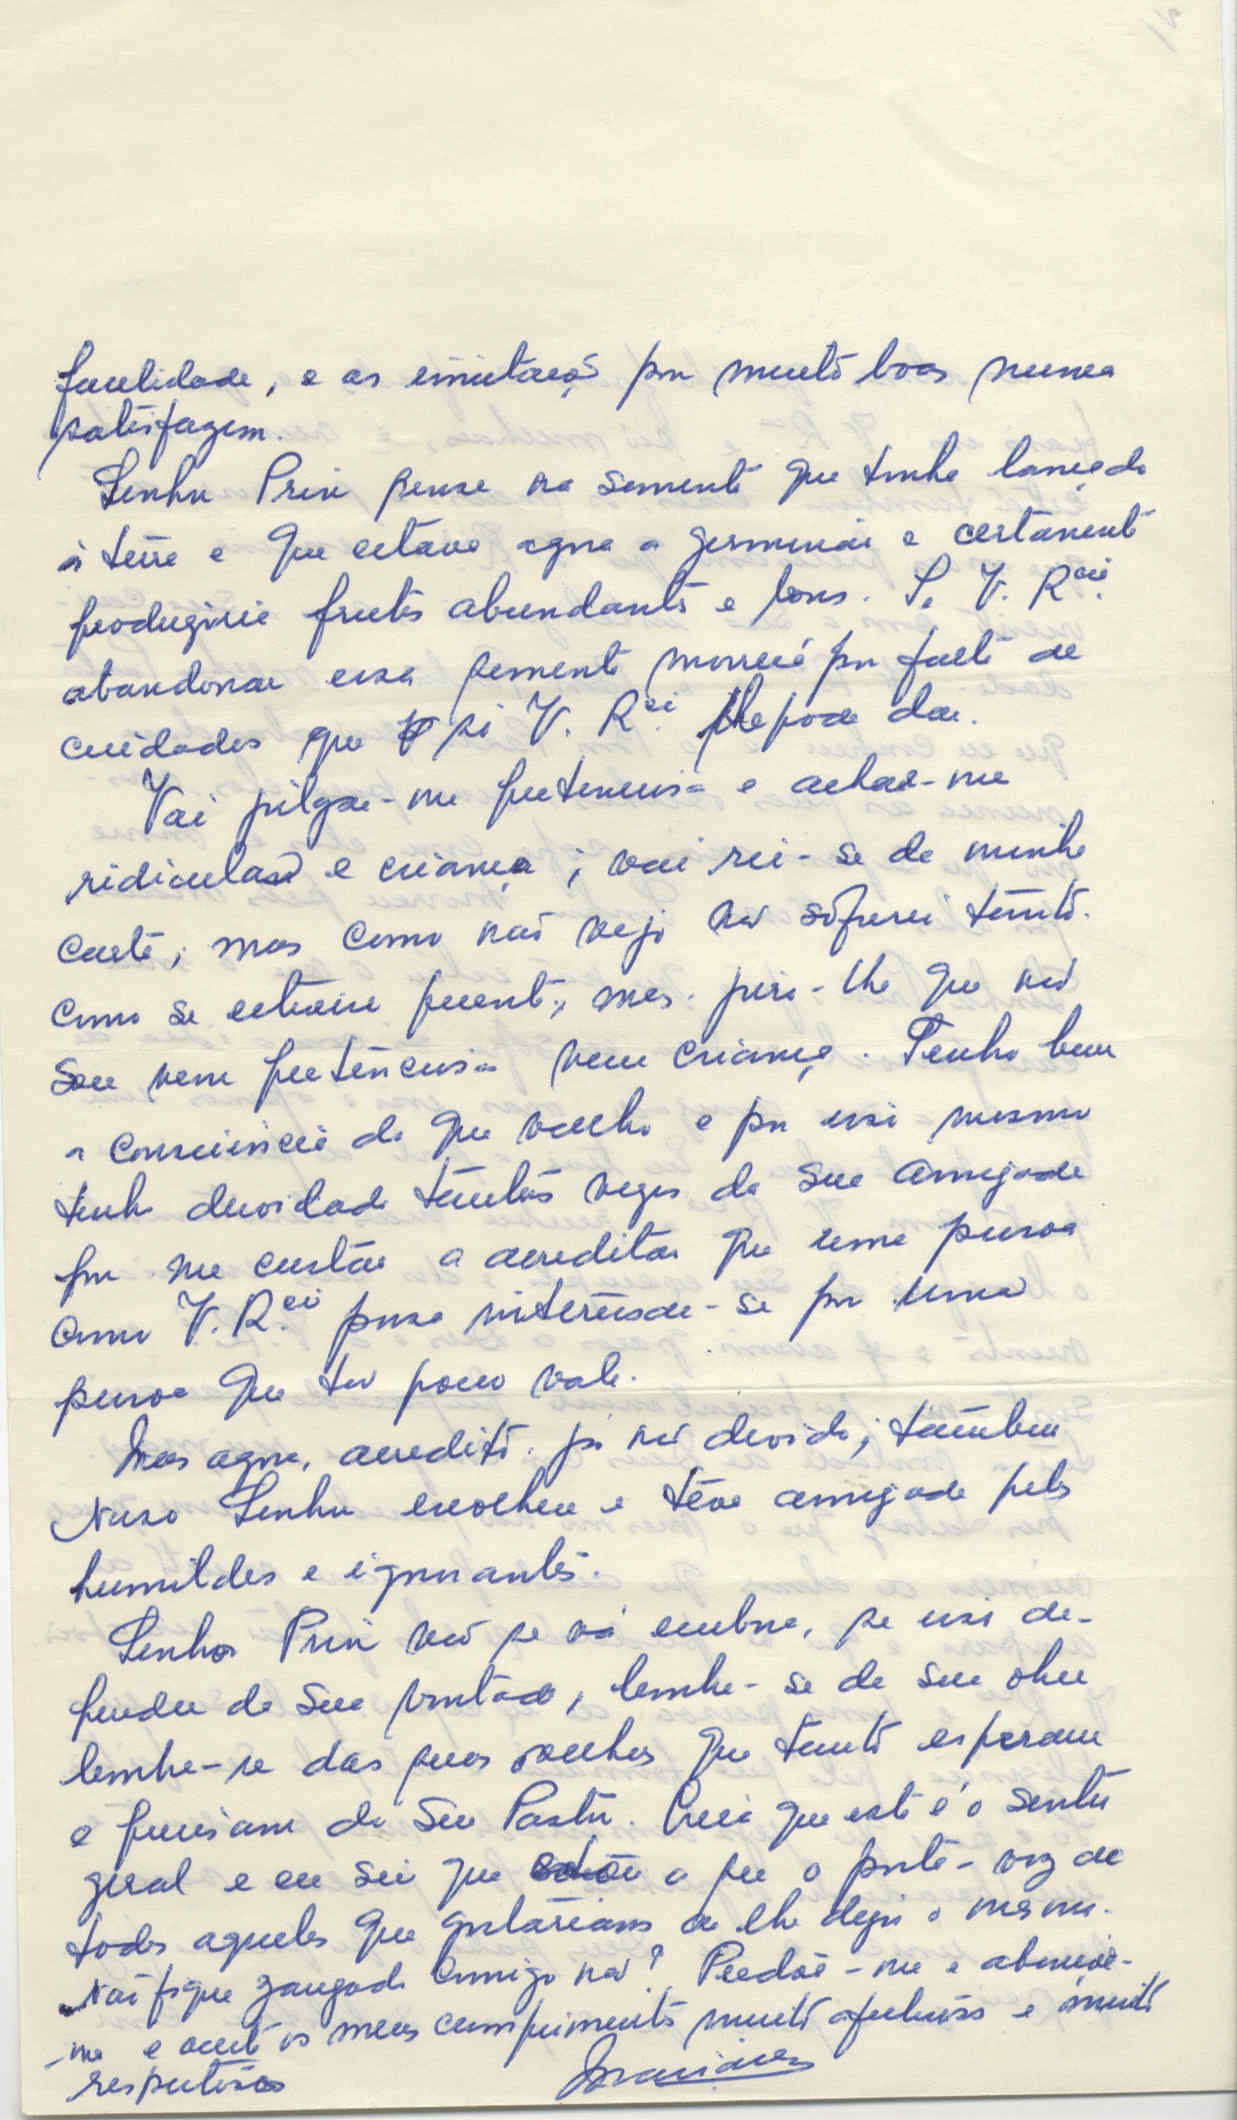 facilidade, e as imitações por muito boas nunca
satisfazem.
Senhor Prior pense na semente que tinha lançado
à terra e que estava agora a germinar e certamente
produziria frutos abundantes e bons. Se V. Rcia.
abandonar essa semente morrerá por falta de
cuidados que só V. Rcia. lhe pode dar.
Vai julgar-me pretenciosa e achar-me
ridicula e criança; vai rir-se da minha
carta, mas como não vejo não sofrerei tanto.
como se estivesse presente, mas juro-lhe que não
sou nem pretenciosa nem criança. Tenho bem
a consciencia do que valho e por isso mesmo
tenho duvidado tantas vezes da sua amizade
por me custar a acreditar que uma pessoa
como V. Rcia. possa interessar-se por uma
pessoa que tão pouco vale.
Mas agora, acredito. já não duvido; também
Nosso Senhor escolheu e teve amizade pelos
humildes e ignorantes.
Senhor Prior não se vá embora, se isso de-
pender da sua vontade, lembre-se da sua obra
lembre-se das suas ovelhas que tanto esperam
e precisam do seu Pastor. Creia que este é o sentir
geral e eu sei que a ser o porta-voz de
todos aqueles que gostariam de lhe dizer o mesmo.
Não fique zangado comigo não? Perdoe-me e abençoe-
-me e aceite os meus cumprimentos muito afectuosos e muito
respeitosos